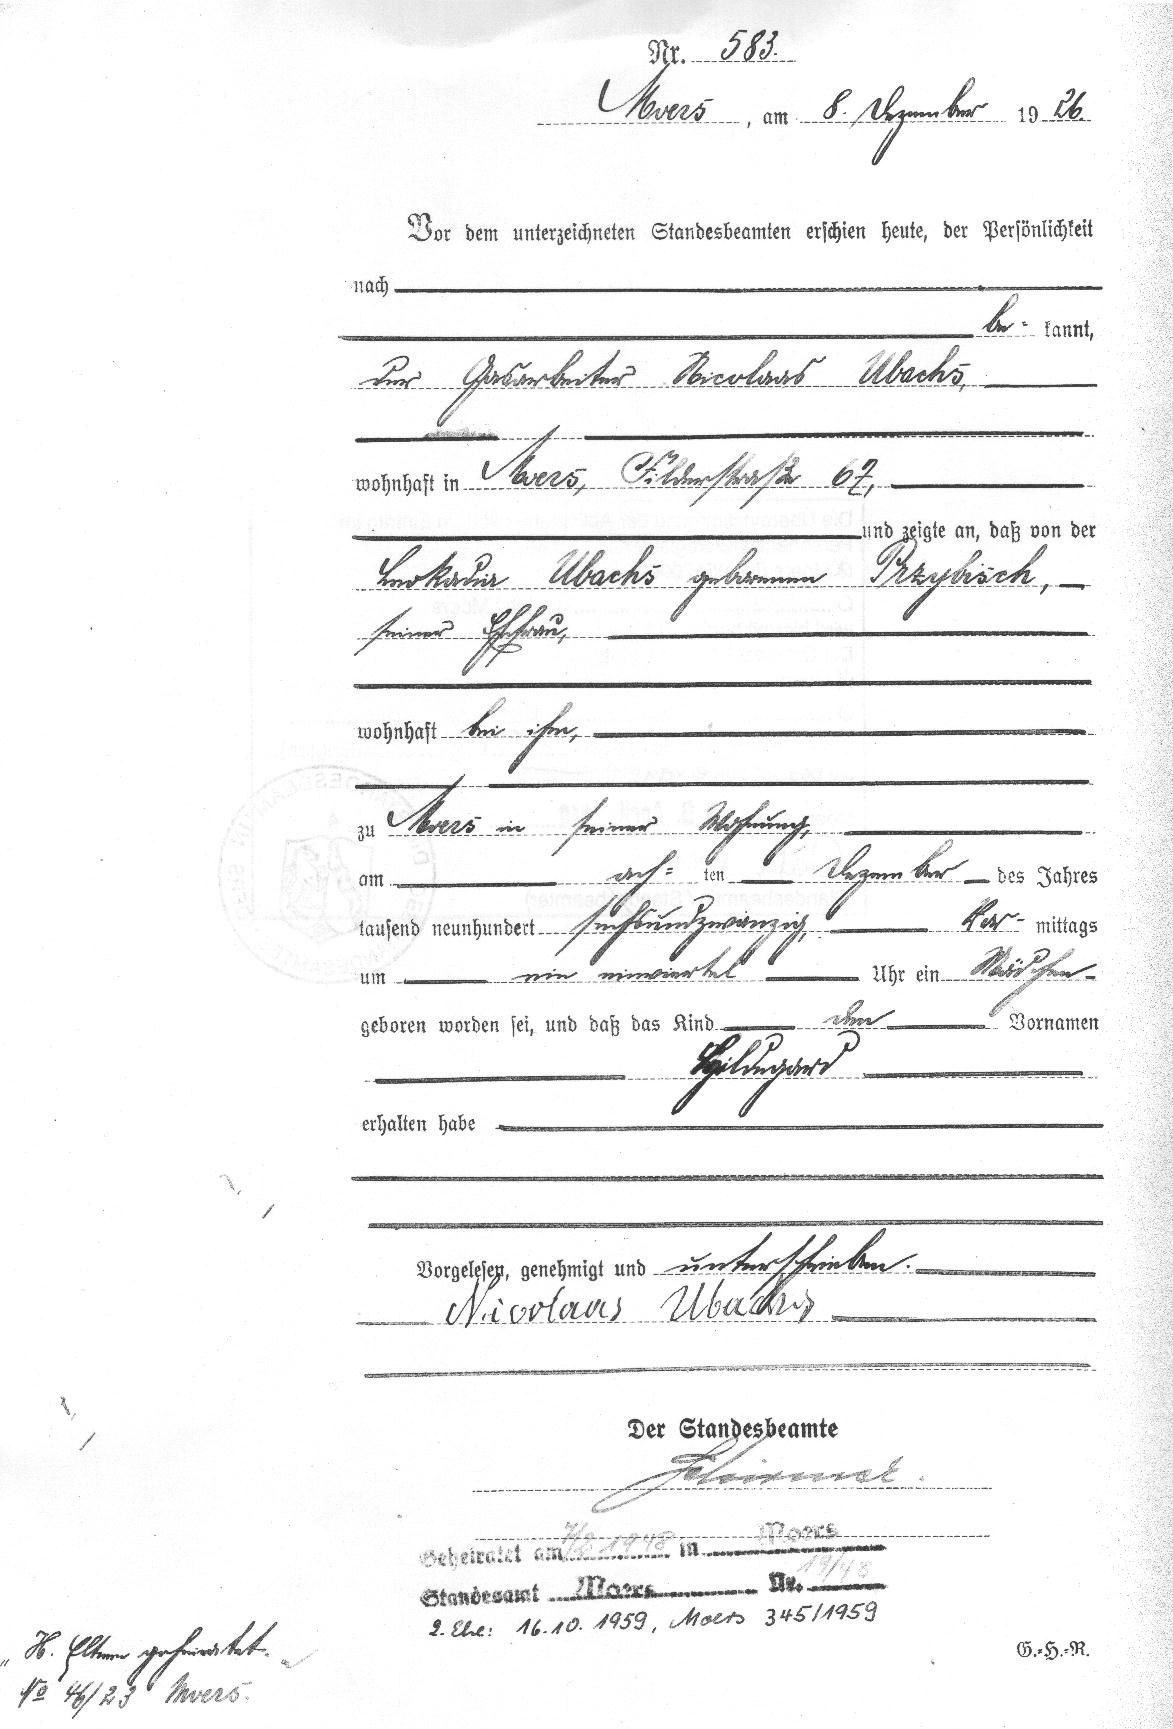 Nr. 583.
Moers, am 8. Dezember 1926.
Vor dem unterzeichneten Standesbeamten erschien heute, der Persönlichkeit
nach
be= kannt,
der Gasarbeiter Nicolaas Ubachs,
wohnhaft in Moers, Filderstraße 67,
und zeigte an, daß von der
Leokadia Ubachs geborenen Przybisch,
seiner Ehefrau,
wohnhaft bei ihm,
zu Moers in seiner Wohnung,
am ach= ten Dezember des Jahres
tausend neunhundert sechsundzwanzig, Vor= mittags
um ein einviertel Uhr ein Mädchen
geboren worden sei, und daß das Kind den Vornamen
Hildegard
erhalten habe
Vorgelesen, genehmigt und unterschrieben.
Nicolaas Ubachs
Der Standesbeamte
Geheiratet am 1948 in Moers
Standesamt Moers Nr. 19/48
2. Ehe: 16.10.1959, Moers 345/1959
G.=H.=R.
Eltern geheiratet.
No 46/23 Moers.